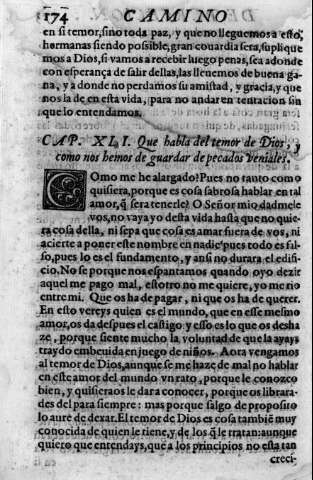 174 CAMINO
en si temor, sino toda paz, y que no lleguemos a esto,
hermanas siendo possible, gran couardia sera, supliquemos
a Dios, si vamos a recebir luego penas, sea adonde
con esperança de salir dellas, las llenemos de buena gana,
y a donde no perdamos su amistad, y gracia, y que
nos la de en esta vida, para no andar en tentacion sin
que lo entendamos.
CAP. XLI. Que habla del temor de Dios, y
como nos hemos de guardar de pecados veniales.
Como me he alargado? Pues no tanto como
quisiera, porque es cosa sabrosa hablar en tal
amor, q̃ sera tenerle? O Señor mio dadmele
vos, no vaya yo desta vida hasta que no quiera
cosa della, ni sepa que cosa es amar fuera de vos, ni
acierte a poner este nombre en nadie, pues todo es falso,
pues lo es el fundamento, y ansi no durara el edificio.
No se porque nos espantamos quando oyo dezir
aquel me pago mal, estotro no me quiere, yo me rio
entre mi. Que os ha de pagar, ni que os ha de querer.
En esto vereys quien es el mundo, que en esse mesmo
amor, os da despues el castigo y esso es lo que os deshaze,
porque siente mucho la voluntad de que la ayays
traydo embeuida en juego de niños. Aora vengamos
al temor de Dios, aunque se me haze de mal no hablar
en este amor del mundo vn rato, porque le conozco
bien, y quisieraos le dar a conocer, porque os librarades
del para siempre: mas porque salgo de proposito
lo auré de dexar. El temor de Dios es cosa tambiẽ muy
conocida de quien le tiene, y de los q̃ le tratan: aunque
quiero que entendays, que a los principios no esta tan
creci-